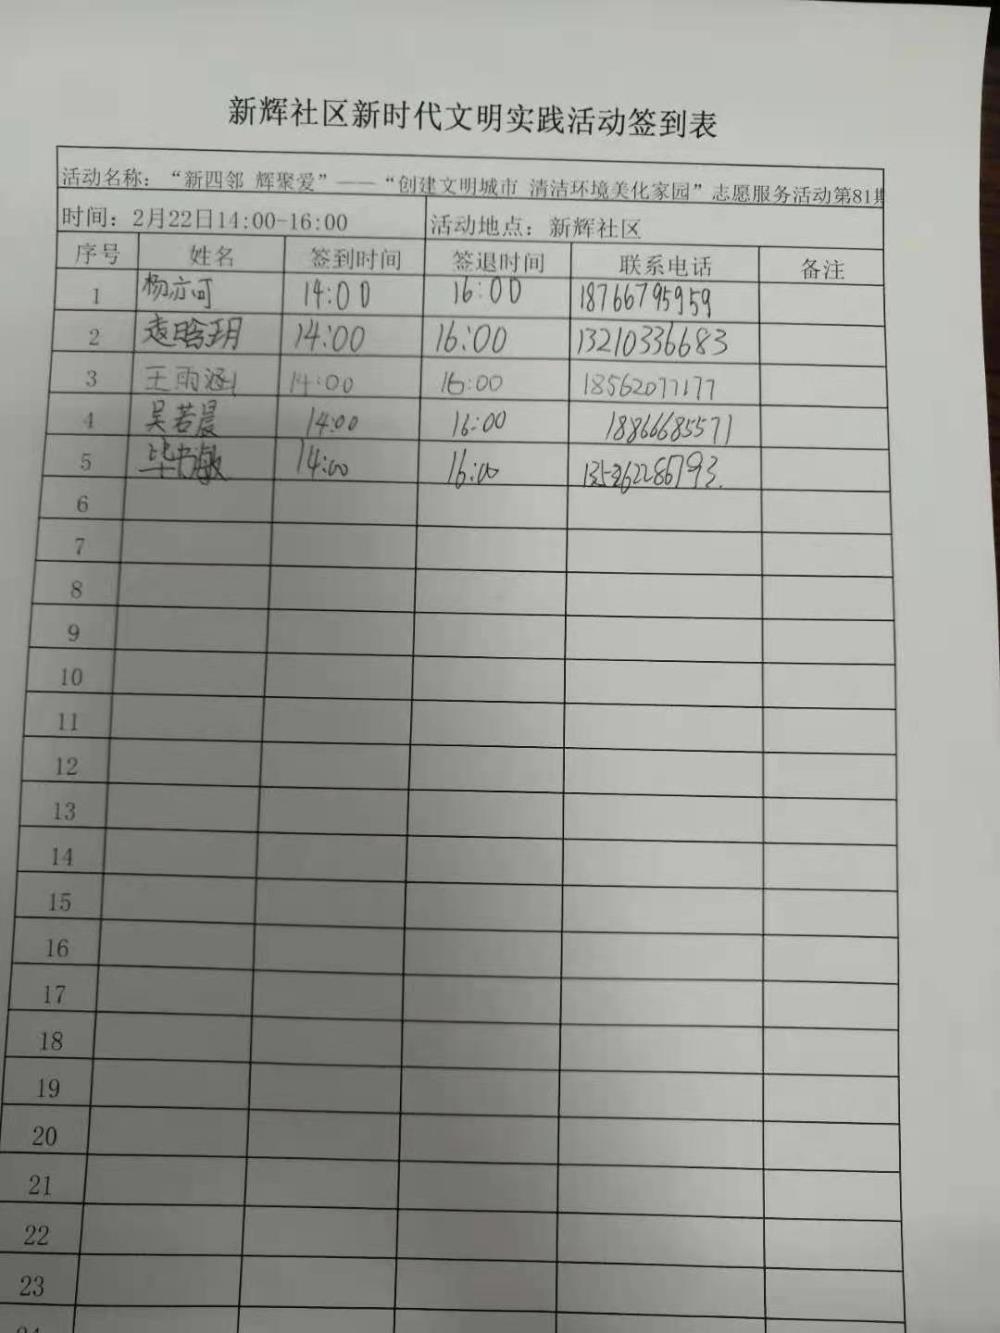 新辉社区新时代文明实践活动签到表
活动名称：“新四邻 辉聚爱”——“创建文明城市 清洁环境美化家园”志愿服务活动第81期
时间：2月22日14:00-16:00 活动地点：新辉社区
序号 姓名 签到时间 签退时间 联系电话 备注
1 杨亦可 14:00 16:00 18766795959
2 袁晗玥 14:00 16:00 13210336683
3 王雨涵 14:00 16:00 18562077177
4 吴若晨 14:00 16:00 18866685571
5 毕书敏 14:00 16:00
6
7
8
9
10
11
12
13
14
15
16
17
18
19
20
21
22
23